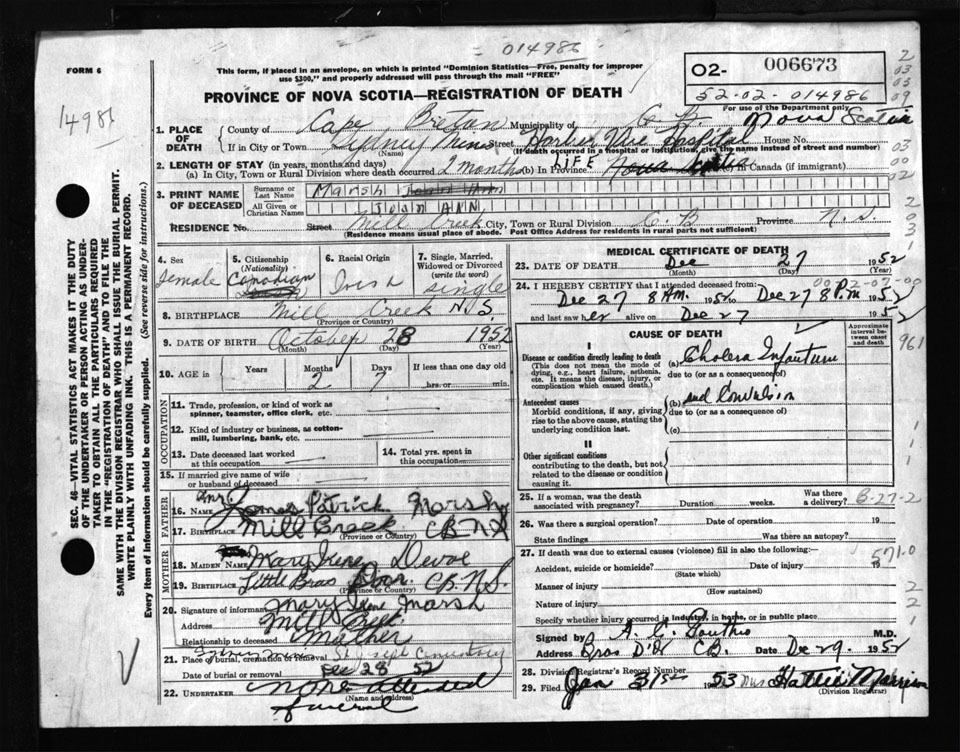 014986
FORM 6
This form, if placed in an envelope, on which is printed "Dominion Statistics—Free, penalty for improper
use $300," and properly addressed will pass through the mail "FREE"
02- 006673
52-02-014986
For use of the Department only
PROVINCE OF NOVA SCOTIA—REGISTRATION OF DEATH
14986
1. PLACE OF DEATH
County of Cape Breton Municipality of C. B. Nova Scotia
If in City or Town Sydney Mines Street Harbor View Hospital House No.
(Name) (If death occurred in a hospital or institution, give the name instead of street and number)
2. LENGTH OF STAY (in years, months and days)
(a) In City, Town or Rural Division where death occurred 2 months (b) In Province LIFE Nova Scotia (c) In Canada (if immigrant)
3. PRINT NAME OF DECEASED
Surname or Last Name Marsh
All Given or Christian Names Joan ANN
RESIDENCE No. Street Mill Creek City, Town or Rural Division C. B Province N. S.
(Residence means usual place of abode. Post Office Address for residents in rural parts not sufficient)
4. Sex female
5. Citizenship (Nationality) Canadian
6. Racial Origin Irish
7. Single, Married, Widowed or Divorced (write the word) single
8. BIRTHPLACE Mill Creek N.S.
(Province or Country)
9. DATE OF BIRTH October 28 1952
(Month) (Day) (Year)
10. AGE in Years Months 2 Days 7 If less than one day old
hrs. or min.
OCCUPATION
11. Trade, profession, or kind of work as
spinner, teamster, office clerk, etc.
12. Kind of industry or business, as cotton-
mill, lumbering, bank, etc.
13. Date deceased last worked
at this occupation
14. Total yrs. spent in
this occupation
15. If married give name of wife
or husband of deceased
FATHER
16. NAME James Patrick Marsh
17. BIRTHPLACE Mill Creek CB NS
(Province or Country)
MOTHER
18. MAIDEN NAME Mary Irene Devoe
19. BIRTHPLACE Little Bras Dor. CB. N.S.
(Province or Country)
20. Signature of informant Mary Irene Marsh
Address Mill Creek
Relationship to deceased Mother
21. Sydney Mines St Joseph Cemetery
Place of burial, cremation or removal
Date of burial or removal Dec 28 52
22. UNDERTAKER None attended
(Name and address)
funeral
MEDICAL CERTIFICATE OF DEATH
23. DATE OF DEATH Dec 27 1952
(Month) (Day) (Year)
24. I HEREBY CERTIFY that I attended deceased from:
Dec 27 8 AM. 1952 to Dec 27 8 P.m 1952
and last saw her alive on Dec 27 1952
CAUSE OF DEATH
Approximate interval between onset and death
I
Disease or condition directly leading to death
(This does not mean the mode of
dying, e.g., heart failure, asthenia,
etc. It means the disease, injury, or
complication which caused death.)
(a) Cholera Infantum
due to (or as a consequence of)
Antecedent causes
Morbid conditions, if any, giving
rise to the above cause, stating the
underlying condition last.
(b) and Convulsion
due to (or as a consequence of)
(c)
II
Other significant conditions
contributing to the death, but not
related to the disease or condition
causing it.
961
25. If a woman, was the death
associated with pregnancy? Duration weeks. Was there a delivery?
26. Was there a surgical operation? Date of operation 19
State findings Was there an autopsy?
27. If death was due to external causes (violence) fill in also the following:
571.0
Accident, suicide or homicide? Date of injury 19
(State which)
Manner of injury
(How sustained)
Nature of injury
Specify whether injury occurred in industry, in home, or in public place
Signed by M.D.
Address Bras D'Or CB. Date Dec 29. 1952
28. Division Registrar's Record Number
29. Filed Jan 31st 1953 Mrs Hattie Morrison
(Division Registrar)
SEC. 46—VITAL STATISTICS ACT MAKES IT THE DUTY
OF THE UNDERTAKER OR PERSON ACTING AS UNDER-
TAKER TO OBTAIN ALL THE PARTICULARS REQUIRED
IN THE "REGISTRATION OF DEATH" AND TO FILE THE
SAME WITH THE DIVISION REGISTRAR WHO SHALL ISSUE THE BURIAL PERMIT.
WRITE PLAINLY WITH UNFADING INK. THIS IS A PERMANENT RECORD.
Every item of information should be carefully supplied. (See reverse side for instructions.)